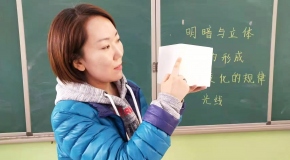 明暗与立体
的形成
变化的规律
光线